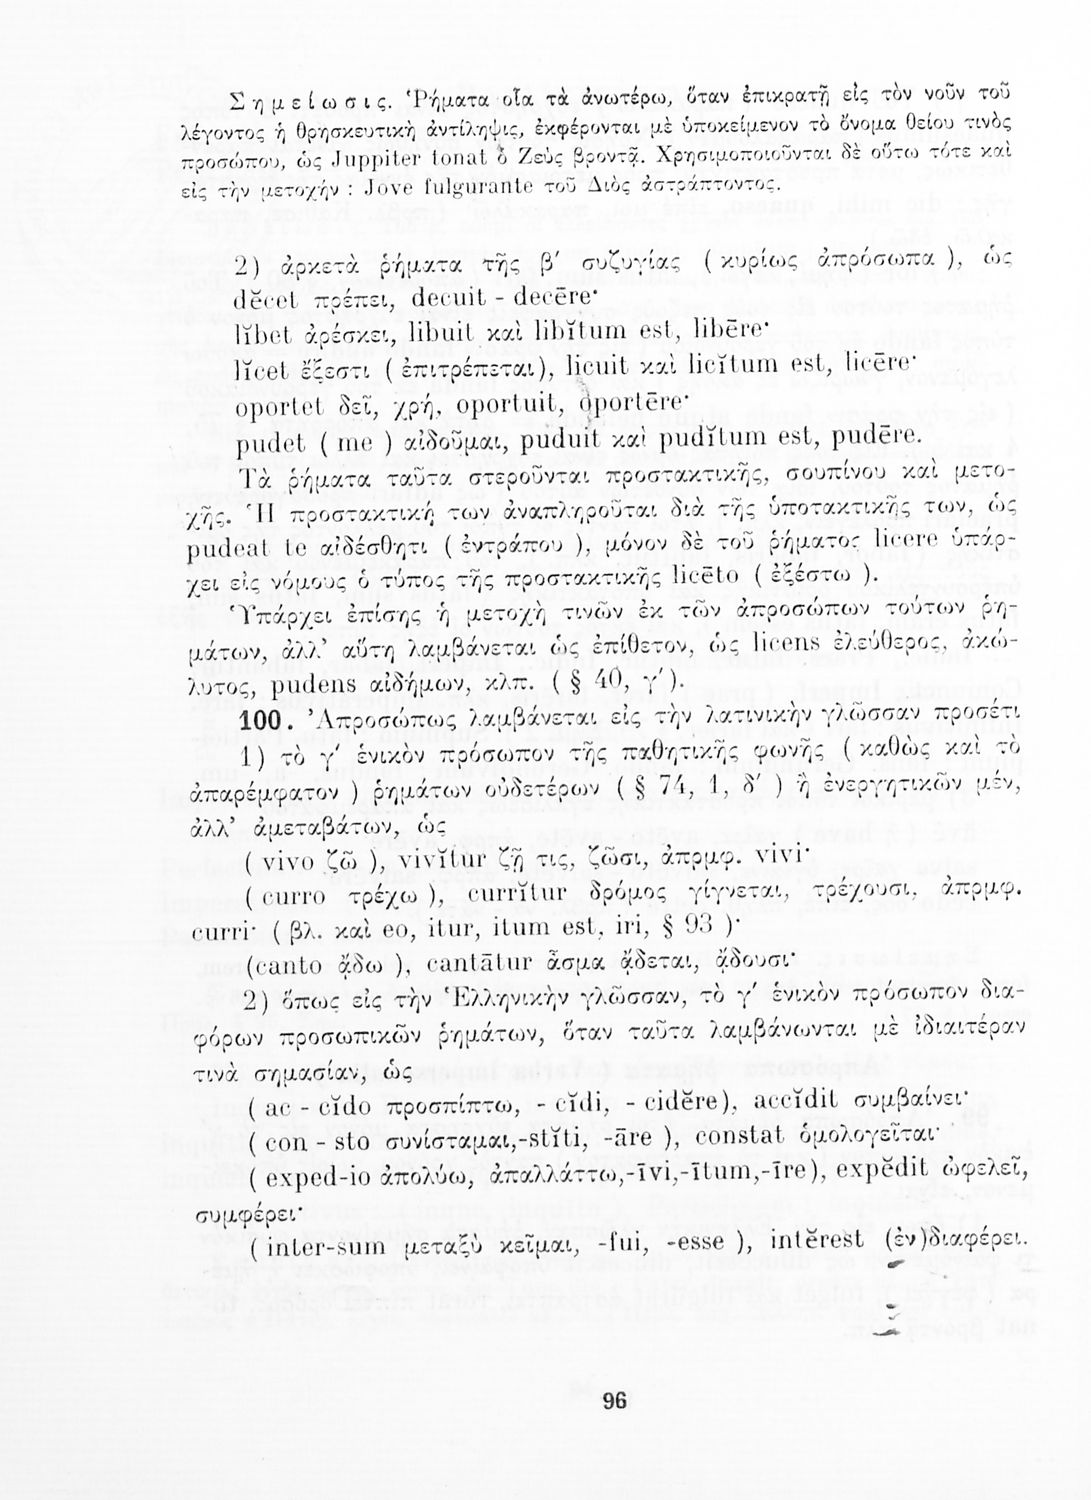 Σημείωσις. Ῥήματα οἷα τὰ ἀνωτέρω, ὅταν ἐπικρατῇ εἰς τὸν νοῦν τοῦ
λέγοντος ἡ θρησκευτικὴ ἀντίληψις, ἐκφέρονται μὲ ὑποκείμενον τὸ ὄνομα θείου τινὸς
προσώπου, ὡς Juppiter tonat ὁ Ζεὺς βροντᾷ. Χρησιμοποιοῦνται δὲ οὕτω τότε καὶ
εἰς τὴν μετοχήν : Jove fulgurante τοῦ Διὸς ἀστράπτοντος.
2) ἀρκετὰ ῥήματα τῆς β′ συζυγίας ( κυρίως ἀπρόσωπα ), ὡς
dĕcet πρέπει, decuit - decēre·
lĭbet ἀρέσκει, libuit καὶ libĭtum est, libēre·
lĭcet ἔξεστι ( ἐπιτρέπεται), licuit καὶ licĭtum est, licēre·
oportet δεῖ, χρή, oportuit, oportēre·
pudet ( me ) αἰδοῦμαι, puduit καὶ pudĭtum est, pudēre.
Τὰ ῥήματα ταῦτα στεροῦνται προστακτικῆς, σουπίνου καὶ μετο-
χῆς. Ἡ προστακτική των ἀναπληροῦται διὰ τῆς ὑποτακτικῆς των, ὡς
pudeat te αἰδέσθητι ( ἐντράπου ), μόνον δὲ τοῦ ῥήματος licere ὑπάρ-
χει εἰς νόμους ὁ τύπος τῆς προστακτικῆς licēto ( ἐξέστω ).
Ὑπάρχει ἐπίσης ἡ μετοχὴ τινῶν ἐκ τῶν ἀπροσώπων τούτων ῥη-
μάτων, ἀλλ’ αὕτη λαμβάνεται ὡς ἐπίθετον, ὡς licens ἐλεύθερος, ἀκώ-
λυτος, pudens αἰδήμων, κλπ. ( § 40, γ′).
100. Ἀπροσώπως λαμβάνεται εἰς τὴν λατινικὴν γλῶσσαν προσέτι
1) τὸ γ′ ἑνικὸν πρόσωπον τῆς παθητικῆς φωνῆς ( καθὼς καὶ τὸ
ἀπαρέμφατον ) ῥημάτων οὐδετέρων ( § 74, 1, δ′ ) ἢ ἐνεργητικῶν μέν,
ἀλλ’ ἀμεταβάτων, ὡς
( vivo ζῶ ), vivĭtur ζῇ τις, ζῶσι, ἀπρμφ. vivi·
( curro τρέχω ), currĭtur δρόμος γίγνεται, τρέχουσι, ἀπρμφ.
curri· ( βλ. καὶ eo, itur, itum est, iri, § 93 )·
(canto ᾄδω ), cantātur ᾆσμα ᾄδεται, ᾄδουσι·
2) ὅπως εἰς τὴν Ἑλληνικὴν γλῶσσαν, τὸ γ′ ἑνικὸν πρόσωπον δια-
φόρων προσωπικῶν ῥημάτων, ὅταν ταῦτα λαμβάνωνται μὲ ἰδιαιτέραν
τινὰ σημασίαν, ὡς
( ac - cĭdo προσπίπτω, - cĭdi, - cidĕre), accĭdit συμβαίνει·
( con - sto συνίσταμαι,-stĭti, -āre ), constat ὁμολογεῖται·
( exped-io ἀπολύω, ἀπαλλάττω,-īvi,-ītum,-īre), expĕdit ὠφελεῖ,
συμφέρει·
( inter-sum μεταξὺ κεῖμαι, -fui, -esse ), intĕrest (ἐν)διαφέρει.
96